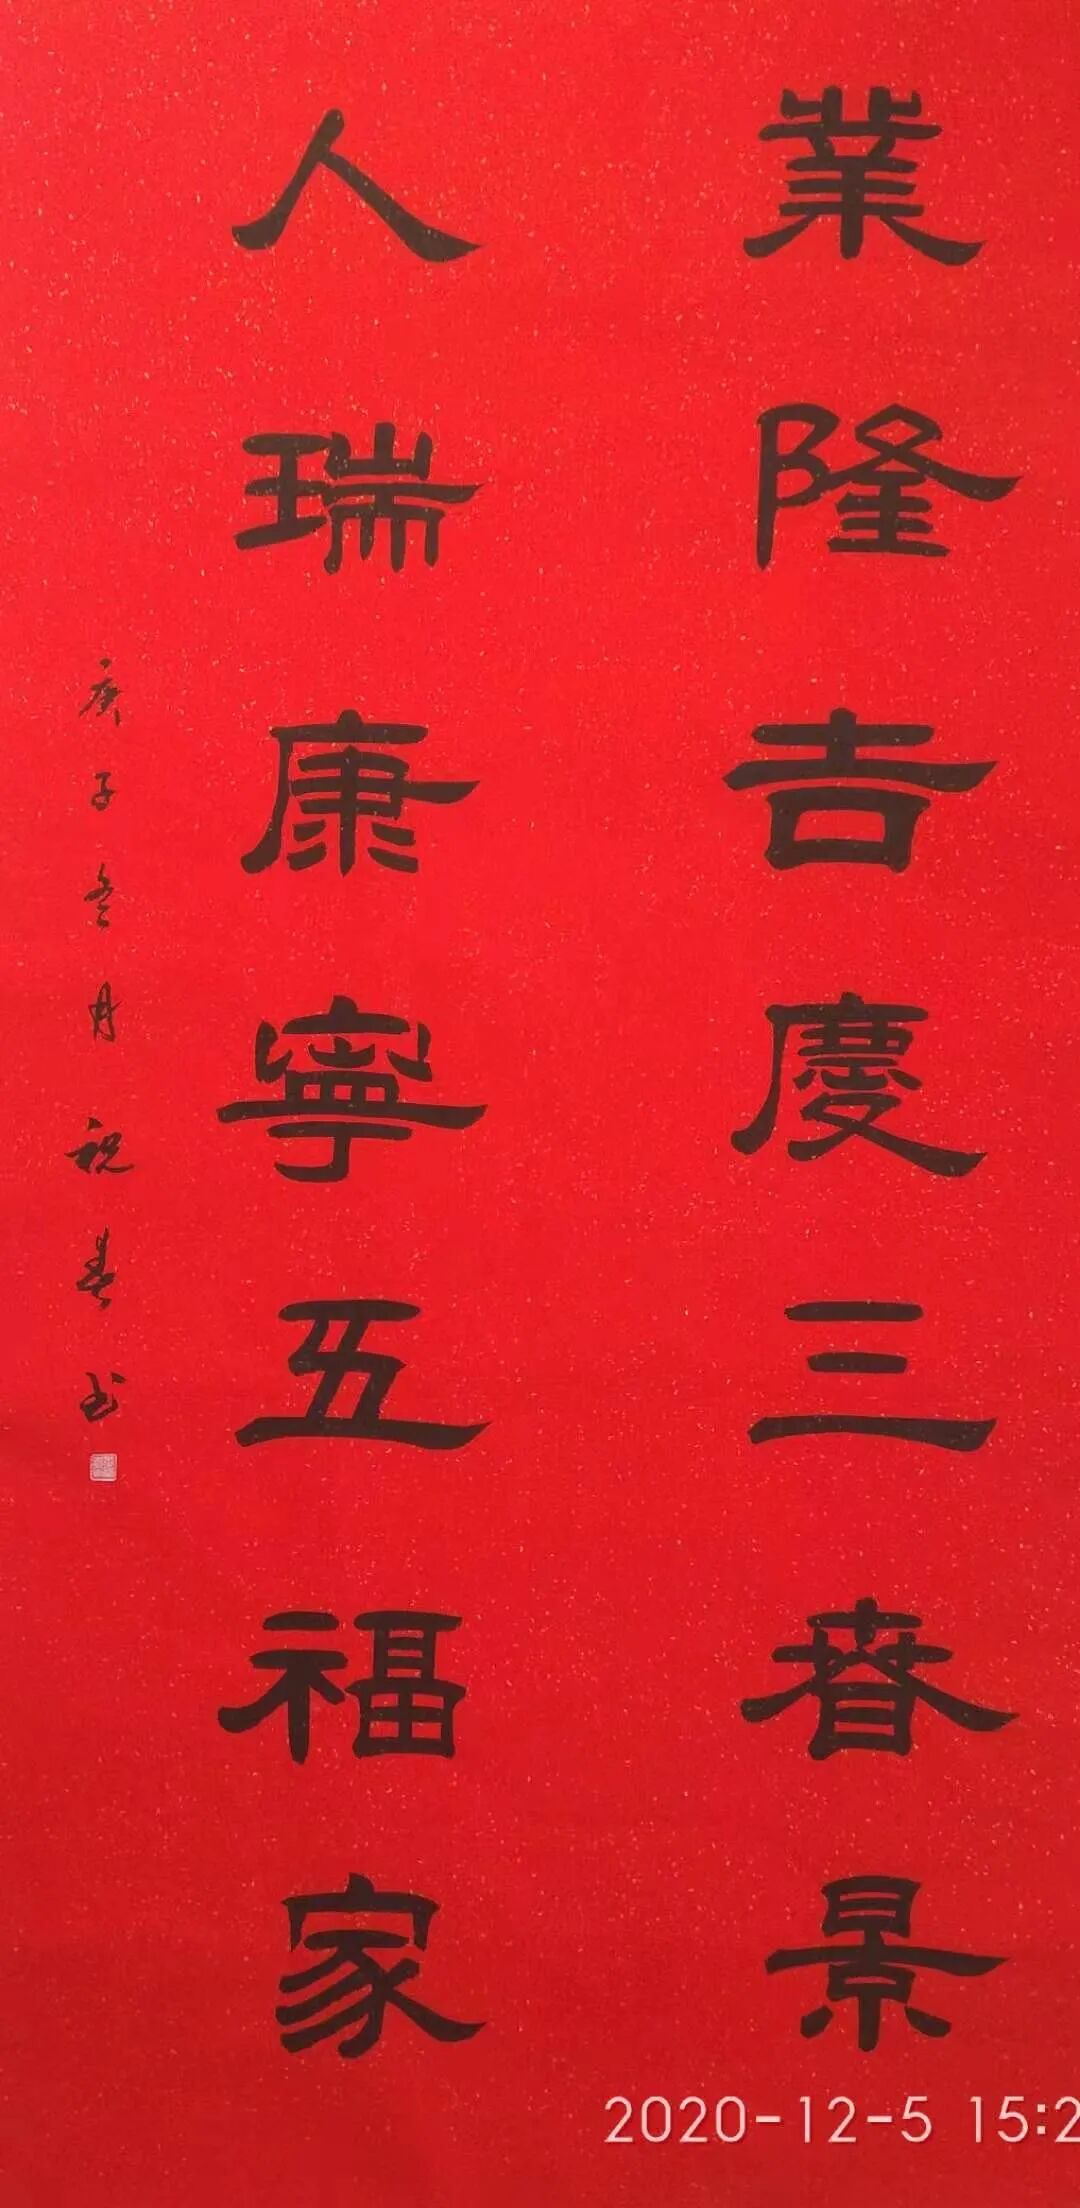 業隆吉慶三春景
人瑞康寧五福家
庚子冬月祝春书
2020-12-5 15:2